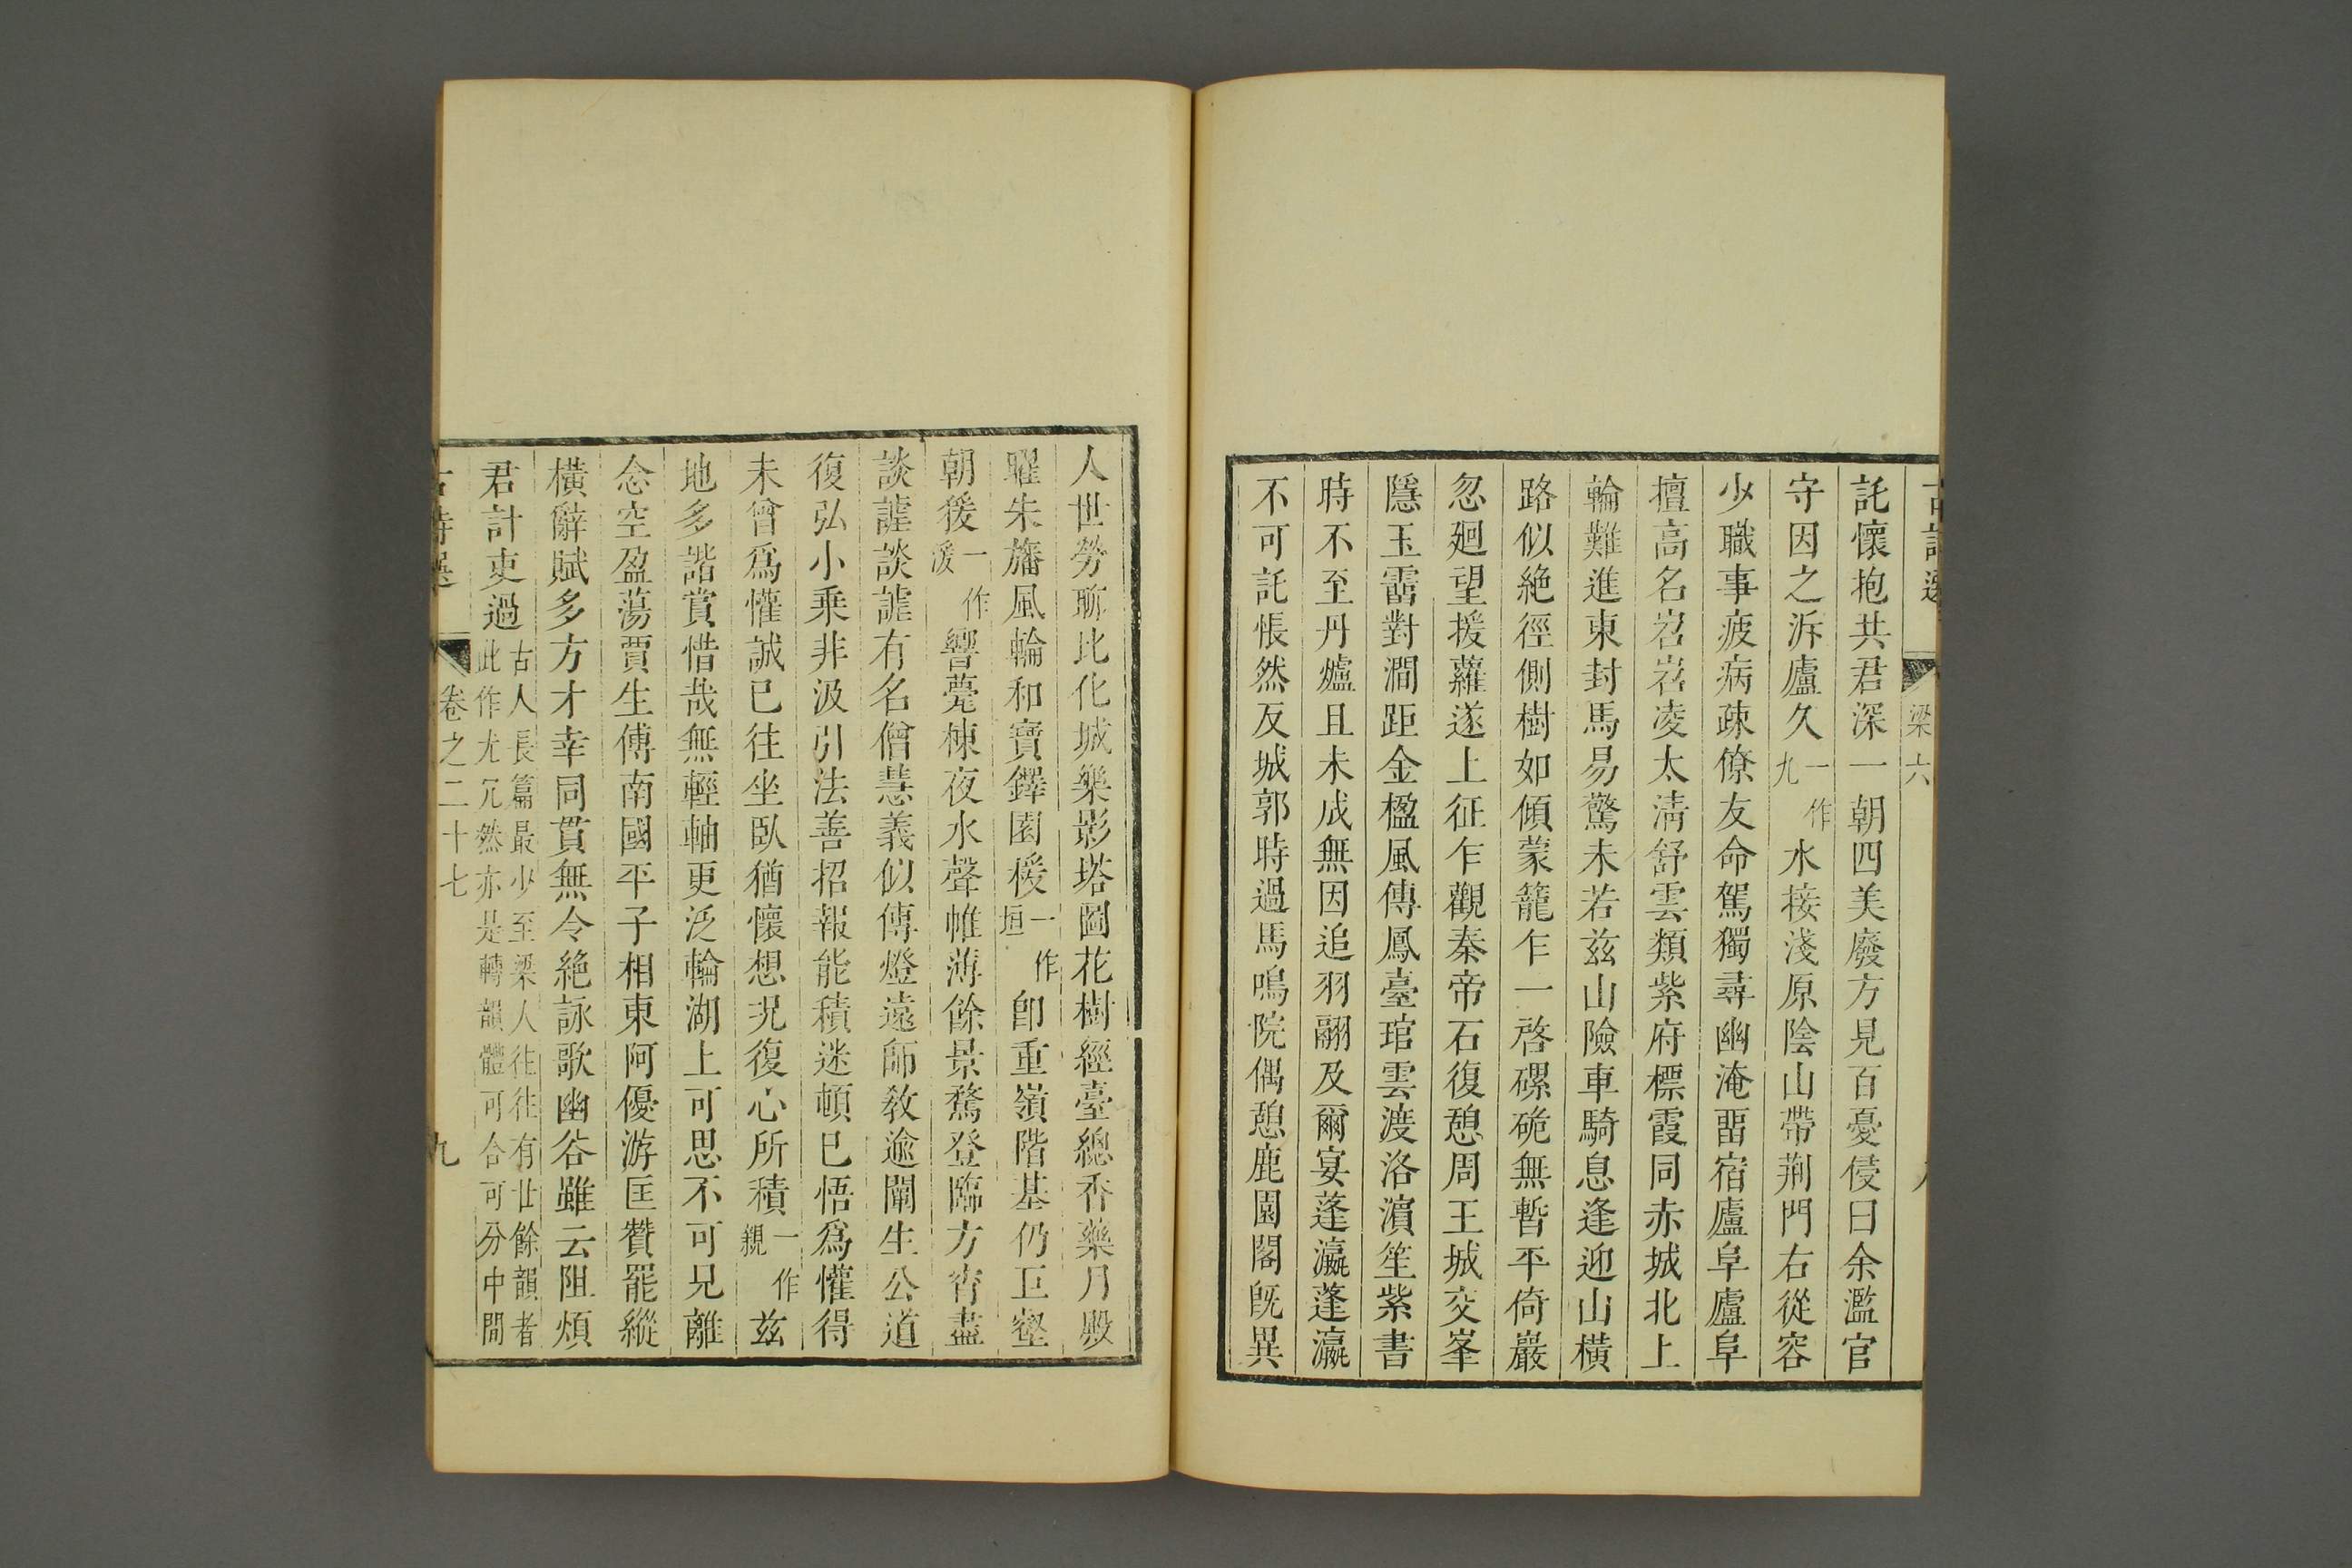 古詩選
梁六
託懷抱共君深一朝四美廢方見百憂侵曰余濫官
守因之泝廬久一作九水接淺原陰山帶荆門右從容
少職事疲病疎僚友命駕獨尋幽淹畱宿廬阜廬阜
擅高名岧岧凌太淸舒雲類紫府標霞同赤城北上
輪難進東封馬易驚未若兹山險車騎息逢迎山橫
路似絶徑側樹如傾蒙籠乍一啓磥硊無暫平倚巖
忽廻望援蘿遂上征乍觀秦帝石復憩周王城交峯
隱玉霤對澗距金楹風傳鳳臺琯雲渡洛濵笙紫書
時不至丹爐且未成無因追羽翮及爾宴蓬瀛蓬瀛
不可託悵然反城郭時過馬鳴院偶憩鹿園閣旣異
人世勞聊比化城樂影塔圖花樹經臺總香藥月殿
曜朱旛風輪和寶鐸園援一作垣卽重嶺階基仍巨壑
朝猨一作湲響薨棟夜水聲帷薄餘景騖登臨方宵盡
談謔談謔有名僧慧義似傳燈遠師敎逾闡生公道
復弘小乘非汲引法善招報能積迷頓已悟爲懽得
未曾爲懽誠已往坐臥猶懷想况復心所積一作親兹
地多諧賞惜哉無輕軸更泛輪湖上可思不可見離
念空盈蕩賈生傅南國平子相東阿優游匡贊罷縱
橫辭賦多方才幸同貫無令絶詠歌幽谷雖云阻煩
君計吏過古人長篇最少至梁人往往有廿餘韻者
此作尤冗然亦是轉韻體可合可分中間
古詩選
卷之二十七
九